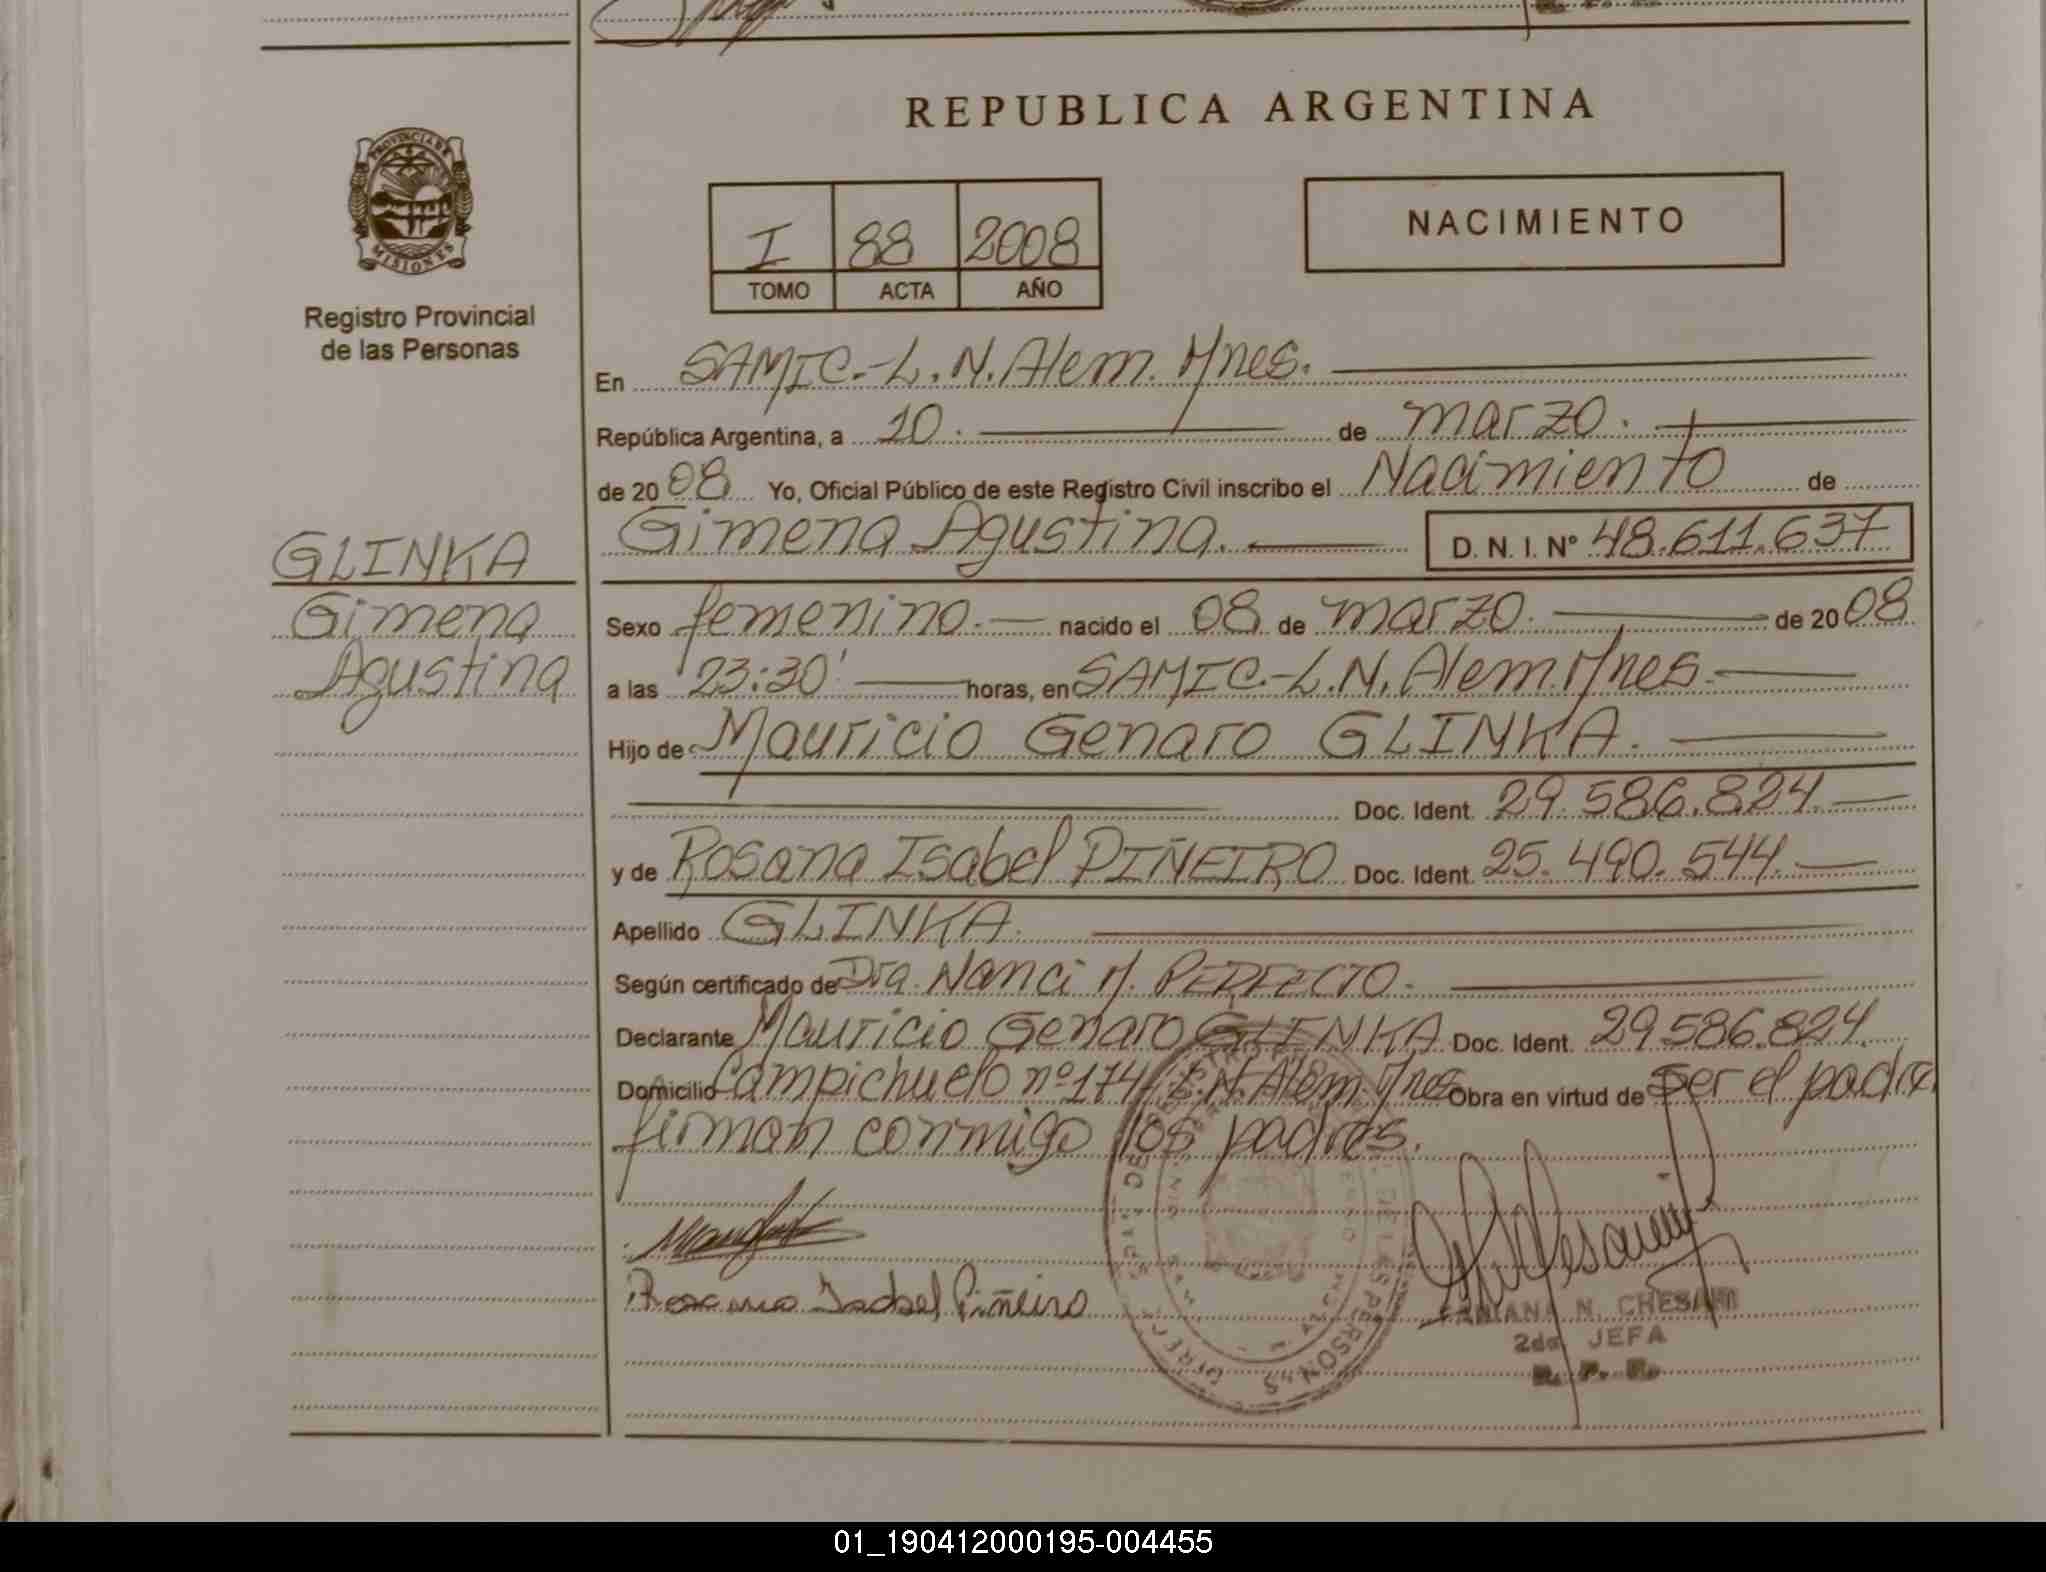 REPUBLICA ARGENTINA
PROVINCIA DE
MISIONES
Registro Provincial
de las Personas
I 88 2008
TOMO ACTA AÑO
NACIMIENTO
En SAMIC.-L.N.Alem.Mnes.
República Argentina, a 10. de marzo.
de 2008 Yo, Oficial Público de este Registro Civil inscribo el Nacimiento de
GLINKA
Gimena
Agustina
Gimena Agustina. D. N. I. Nº 48.611.637
Sexo femenino. nacido el 08 de marzo. de 2008
a las 23:30' horas, en SAMIC.-L.N.Alem.Mnes.
Hijo de Mauricio Genaro GLINKA.
Doc. Ident. 29.586.824.
y de Rosana Isabel PIÑEIRO Doc. Ident. 25.490.544.
Apellido GLINKA.
Según certificado de Dra. Nanci M. PERFECTO.
Declarante Mauricio Genaro GLINKA Doc. Ident. 29.586.824.
Domicilio Campichuelo nº 174-L.N.Alem.Mnes Obra en virtud de ser el padre
firman conmigo los padres.
Isabel Piñeiro
N. CHESANI
2da. JEFA
R. P. P.
DE LAS PERSONAS
01_190412000195-004455